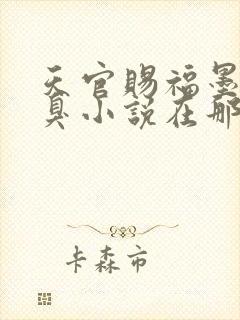 天官赐福墨
臭小说在那
卡森市